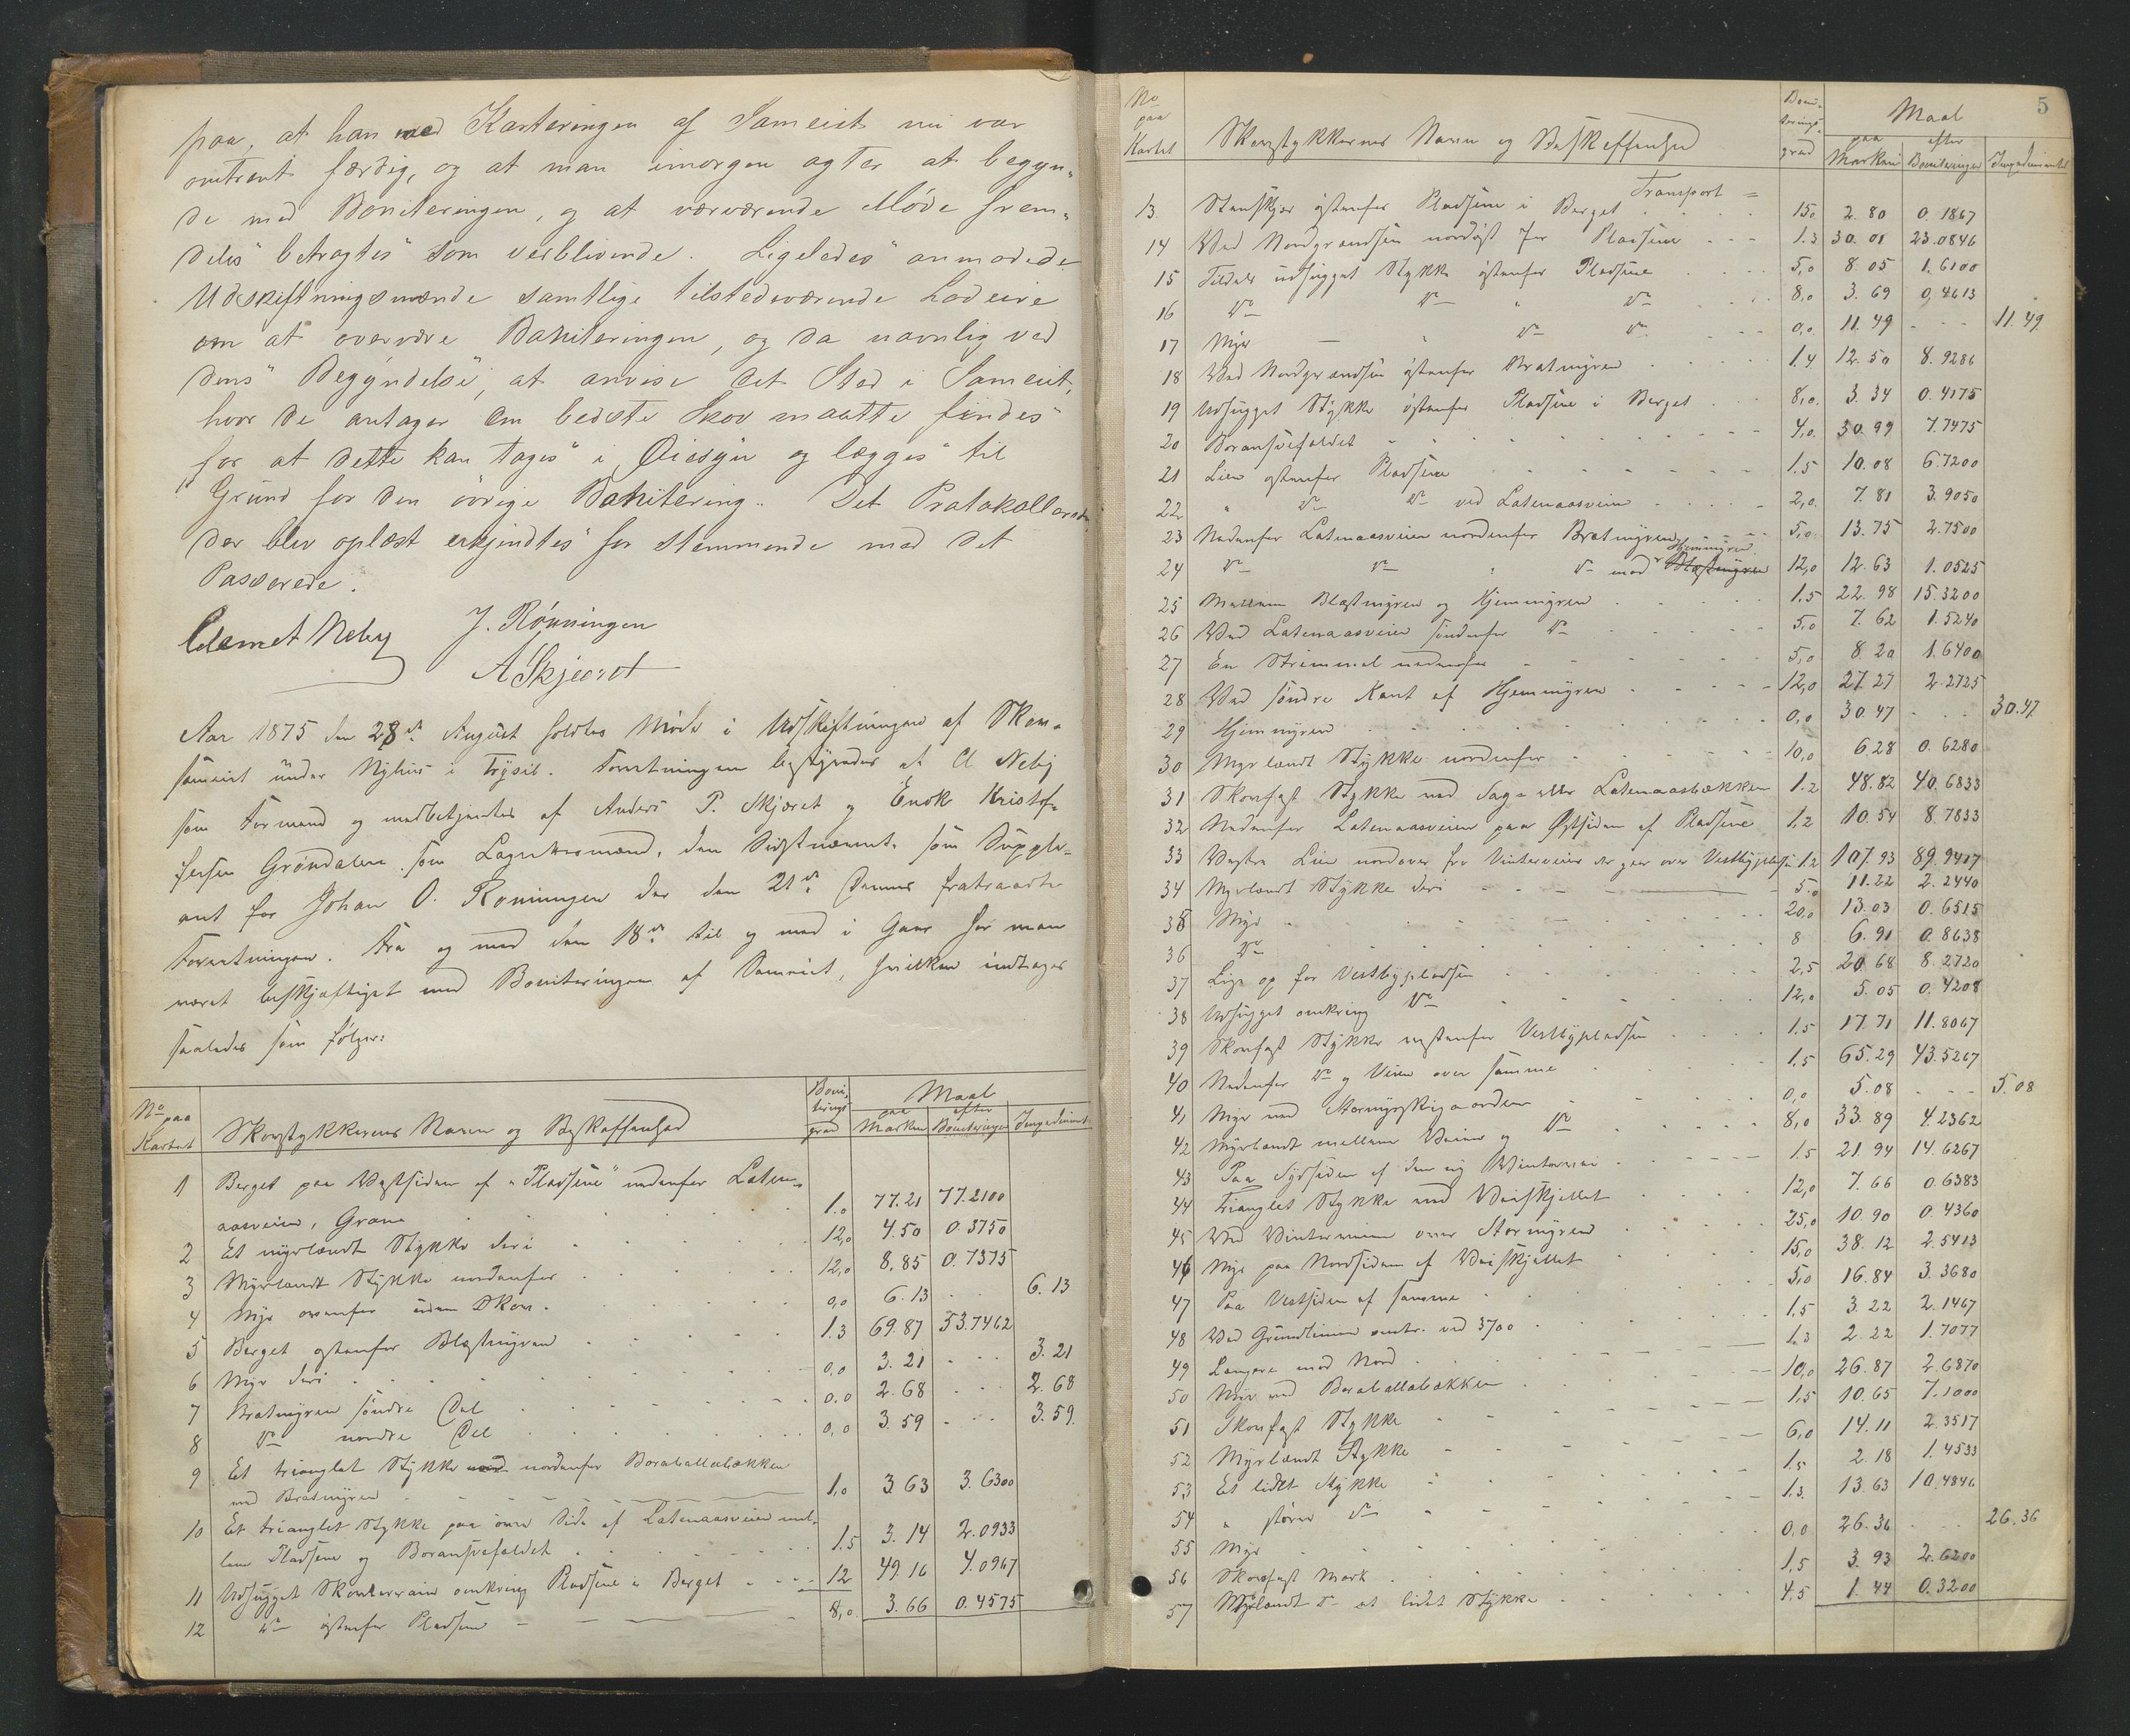 paa, at han med Karteringen af Sameiet nu var
omtrent færdig, og at man imorgen agter at begyn-
de med Boniteringen, og at værværende Møde frem-
deles betragtes som vedblivende. Ligeledes anmodede
Udskiftningsmænde samtlige tilstedeværende Lodeire
om at overvære Boniteringen, og da navnlig ved
dens Begyndelse, at anvise det Sted i Sameiet,
hvor de antager den bedste Skov maatte findes
for at dette kan tages i Øiesyn og lægges til
Grund for den övrige Bonitering. Det Protokollerede
der blev oplæst erkjendtes for stemmende med det
Passerede.
Clemet Neby J. Rönningen
A Skjæret
Aar 1875 den 28de August holdtes Møde i Udskiftningen af Skov-
sameiet under Nyhus i Trysil. Forretningen bestyredes af Cl Neby
som Formand og medbetjentes af Anders P. Skjæret og Enok Kristof-
fersen Grøndalen som Lagrettesmænd, den Sidstnævnte som Supple-
ant for Johan O. Rønningen der den 21de Dennes fratraadte
Forretningen. Fra og med den 18de til og med i Gaar har man
været beskjæftiget med Boniteringen af Sameiet, hvilken indtages
saaledes som følger:
No paa Kartet Skovstykkernes Navn og Beskaffenhed Boniteringsgrad Maal paa Marken efter Boniteringen Impediment
1 Berget paa Vestsiden af "Pladsene" nedenfor Laten-
aasveien, Grane 1.0 77.21 77.2100
2 Et myrlændt Stykke deri 12,0 4.50 0.3750
3 Myrlændt Stykke nordenfor 12,0 8,85 0.7375
4 Myr ovenfor uden Skov 0,0 6.13 6.13
5 Berget østenfor Blæstmyren 1.3 69.87 53.7462
6 Myr deri 0,0 3.21 3.21
7 Bratmyren söndre Del 0.0 2.68 2.68
8 Do nordre Del 0,0 3.59 3.59
9 Et trianglet Stykke nordenfor Boraballabækken
ved Bratmyren 1,0 3.63 3.6300
10 Et trianglet Stykke paa övre Side af Latenaasveien mel-
lem Pladsene og Boransvefaldet 1.5 3.14 2.0933
11 Udhugget Skovterrain omkring Pladsene i Berget 12 49.16 4.0967
12 Do østenfor Pladsene 8,0 3.66 0.4575
5
No paa Kartet Skovstykkernes Navn og Beskaffenhed Boniteringsgrad Maal paa Marken efter Boniteringen Impediment
Transport
13 Stenskjær østenfor Pladsene i Berget 15.0 2.80 0.1867
14 Ved Nordgrændsen nordøst for Pladsene 1.3 30.01 23.0846
15 Tildels udhugget Stykke østenfor Pladsene 5,0 8.05 1.6100
16 Do Do " Do 8,0 3.69 0,4613
17 Myr " Do Do 0,0 11.49 11.49
18 Ved Nordgrændsen østenfor Bratmyren 1.4 12.50 8.9286
19 Udhugget Stykke østenfor Pladsene i Berget 8,0 3.34 0.4175
20 Boransvefaldet 4,0 30.99 7.7475
21 Lien østenfor Pladsene 1.5 10.08 6.7200
22 " Do Do ved Latenaasveien 2,0 7.81 3.9050
23 Nedenfor Latenaasveien nordenfor Bratmyren 5,0 13.75 2.7500
24 Do Do : Do mod Blæstmyren Hjemmyren 12,0 12.63 1.0525
25 Mellem Blæstmyren og Hjemmyren 1.5 22.98 15.3200
26 Ved Latenaasveien søndenfor Do 5,0 7.62 1.5240
27 En Strimmel nedenfor 5,0 8.20 1.6400
28 Ved søndre Kant af Hjemmyren 12,0 27.27 2.2725
29 Hjemmyren 0,0 30.47 30.47
30 Myrlændt Stykke nordenfor 10,0 6.28 0.6280
31 Skovfast Stykke ved Sag- eller Latenaasbækken 1.2 48.82 40.6833
32 Nedenfor Latenaasveien paa Østsiden af Pladsene 1,2 10.54 8.7833
33 Vestre Lien nordover fra Vinterveien der gaar over Vestbypladsen 1.2 107.93 89.9417
34 Myrlændt Stykke deri 5.0 11.22 2.2440
35 Myr 20,0 13.03 0.6515
36 Do 8 6.91 0.8638
37 Lige op for Vestbypladsen 2,5 20.68 8.2720
38 Udhugget omkring Do 12,0 5.05 0.4208
39 Skovfast Stykke vestenfor Vestbypladsen 1.5 17.71 11.8067
40 Nedenfor Do og Veien over samme 1.5 65.29 43.5267
41 Myr ved Stormyrskigaarden 0,0 5.08 5.08
42 Myrlændt mellem Veien og Do 8,0 33.89 4.2362
43 Paa Sydsiden af den ny Vintervei 1.5 21.94 14.6267
44 Trianglet Stykke ved Veiskjellet 12,0 7.66 0.6383
45 Ved Vinterveien over Stormyren 25,0 10.90 0.4360
46 Myr paa Nordsiden af Veiskjellet 15,0 38.12 2.5413
47 Paa Vestsiden af samme 5,0 16.84 3.3680
48 Ved Grundlinien omtr. ved 3700 1,5 3.22 2.1467
49 Længere mod Nord 1.3 2.22 1.7077
50 Myr ved Boraballabækken 10,0 26.87 2.6870
51 Skovfast Stykke 1.5 10.65 7.1000
52 Myrlændt Stykke 6,0 14.11 2.3517
53 Et lidet Stykke 1.5 2.18 1.4533
54 " større Do 1.3. 13.63 10.4846
55 Myr 0,0 26.36 26.36
56 Skovfast Mark 1,5 3.93 2.6200
57 Myrlændt Do et lidet Stykke 4.5 1.44 0.3200